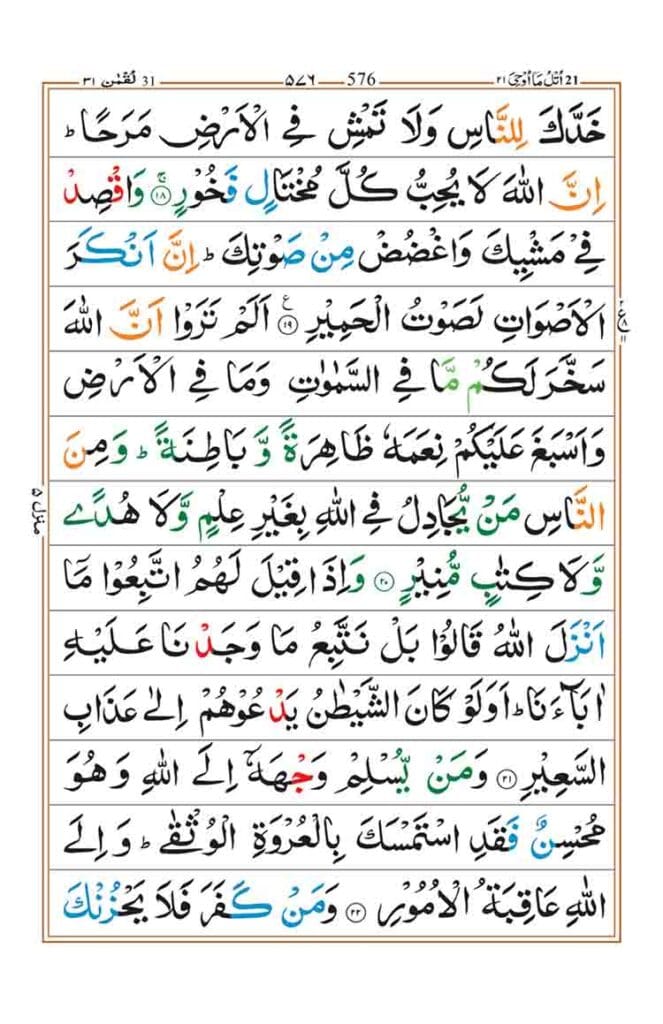 اُتْلُ مَا اُوْحِىَ ٢١ 21 576 ٥٧٦ لُقْمٰن ٣١ 31
خَدَّكَ لِلنَّاسِ وَلَا تَمْشِ فِي الْاَرْضِ مَرَحًا ؕ
اِنَّ اللّٰهَ لَا يُحِبُّ كُلَّ مُخْتَالٍ فَخُوْرٍ ۚ ۝١٨ وَاقْصِدْ
فِيْ مَشْيِكَ وَاغْضُضْ مِنْ صَوْتِكَ ؕ اِنَّ اَنْكَرَ
الْاَصْوَاتِ لَصَوْتُ الْحَمِيْرِ ۝١٩ ع اَلَمْ تَرَوْا اَنَّ اللّٰهَ
سَخَّرَ لَكُمْ مَّا فِي السَّمٰوٰتِ وَمَا فِي الْاَرْضِ
وَاَسْبَغَ عَلَيْكُمْ نِعَمَهٗ ظَاهِرَةً وَّ بَاطِنَةً ؕ وَمِنَ
النَّاسِ مَنْ يُّجَادِلُ فِي اللّٰهِ بِغَيْرِ عِلْمٍ وَّلَا هُدًى
وَّلَا كِتٰبٍ مُّنِيْرٍ ۝٢٠ وَاِذَا قِيْلَ لَهُمُ اتَّبِعُوْا مَآ
اَنْزَلَ اللّٰهُ قَالُوْا بَلْ نَتَّبِعُ مَا وَجَدْنَا عَلَيْهِ
اٰبَآءَنَا ؕ اَوَلَوْ كَانَ الشَّيْطٰنُ يَدْعُوْهُمْ اِلٰى عَذَابِ
السَّعِيْرِ ۝٢١ وَمَنْ يُّسْلِمْ وَجْهَهٗۤ اِلَى اللّٰهِ وَهُوَ
مُحْسِنٌ فَقَدِ اسْتَمْسَكَ بِالْعُرْوَةِ الْوُثْقٰى ؕ وَاِلَى
اللّٰهِ عَاقِبَةُ الْاُمُوْرِ ۝٢٢ وَمَنْ كَفَرَ فَلَا يَحْزُنْكَ
منزل ٥